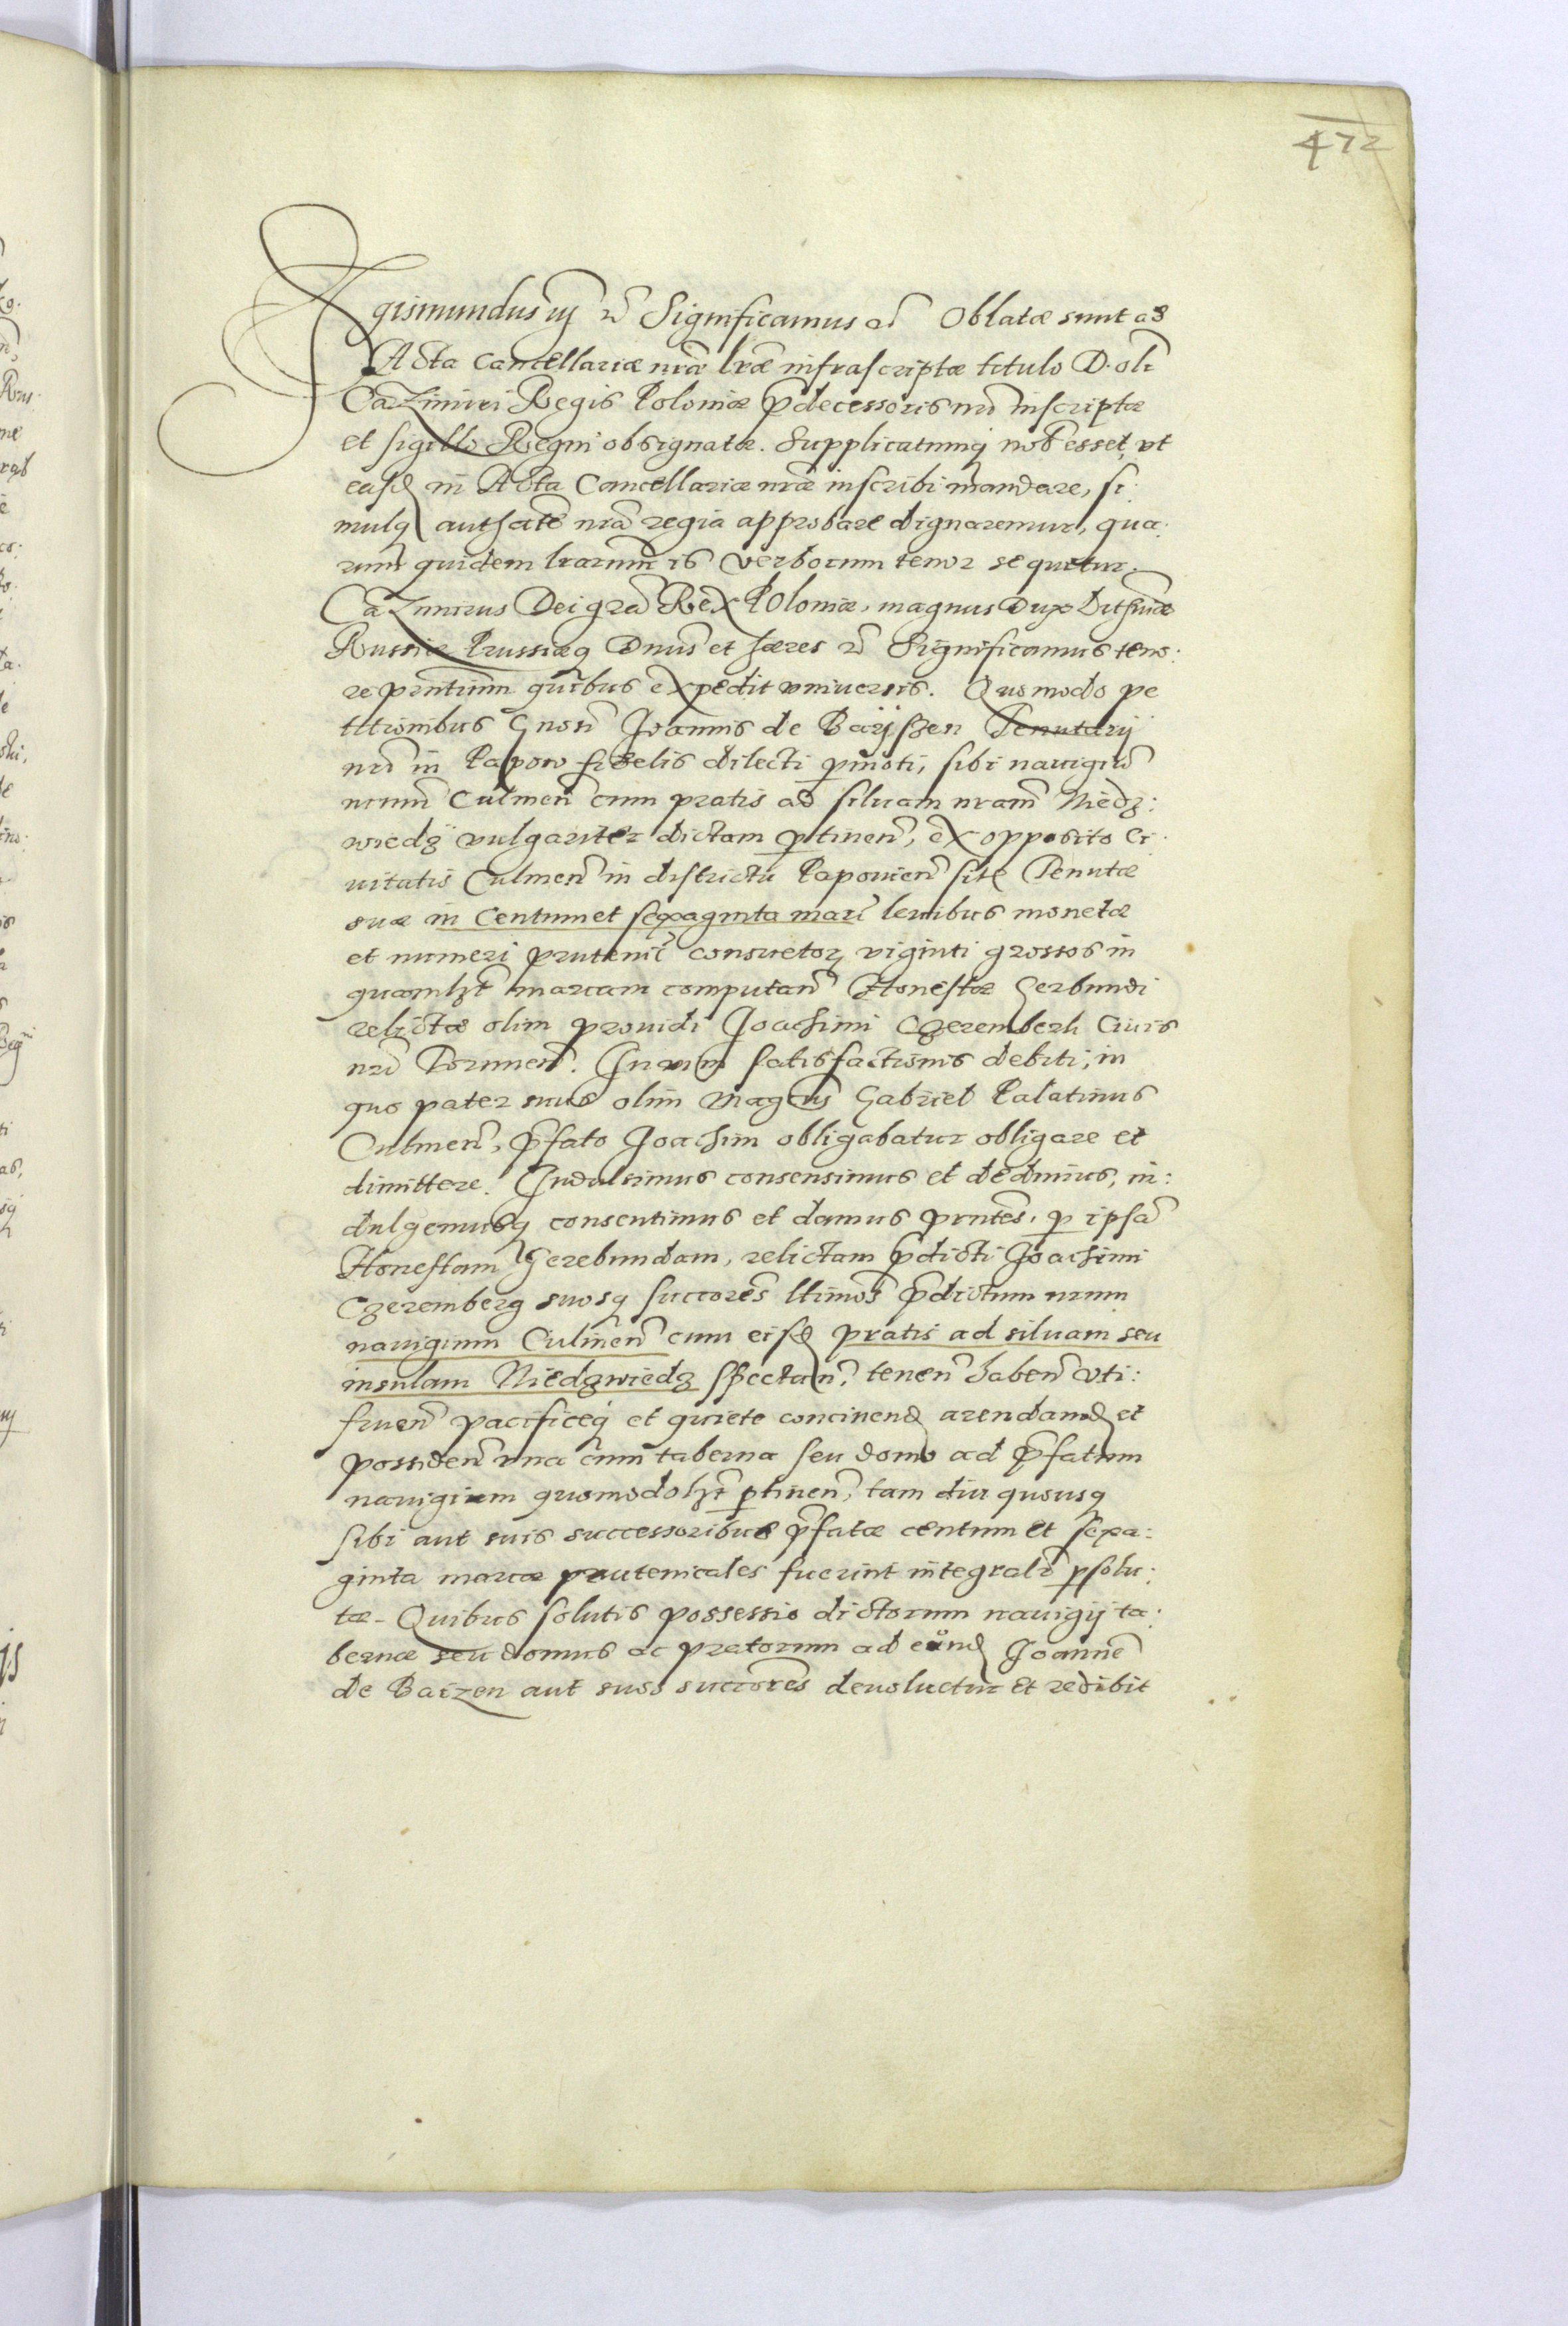 472
Sigismundus iij etc̃ Significamus etc̃ Oblatæ sunt ad
Acta Cancellariæ nr̃æ lr̃æ infrascriptæ titulo D. oli᷈
Cazimiri Regis Poloniæ p̃decessoris nr̃i inscriptæ
et sigillo Regni obsignatæ. Supplicatumq nob᷈ esset, vt
easd᷈ in Acta Cancellariæ nr̃æ inscribi mandare, si:
mulq authãte nr̃a regia approbare dignaremur, qua:
rum quidem lrarum is verborum tenor sequitur.
Cazimirus Dei gr̃a Rex Poloniæ, magnus Dux Lithuaniæ
Russiæ Prussiæq Dnũs et hæres etc̃ Significamus teno:
re pñtium quibus expedit vniuersis. Quomodo pe
titionibus Gnosi᷈ Joannis de Bayszen Tenutarij
nr̃i in Papow fidelis dilecti p̱moti, sibi nauigiũ
nrum Culmeñ cum pratis ad siluam nram Niedz:
wiedz vulgariter dictam p̱tineñ, ex opposito Ci:
uitatis Culmeñ in districtu Papouieñ site Tenutæ
suæ in Centum et sexaginta marc̃ leuibus monetæ
et numeri prutenic̃ consuetoꝝ viginti grossos in
quamlꝫt marcam computañ Honestæ Gerbundi
relictæ olim prouidi Joachimi Czeremberh Ciuis
nr̃i Toruneñ. In vim satisfactionis debiti, in
quo pater suus olim Mag᷈cus Gabriel Palatinus
Culmeñ, p̃fato Joachim obligabatur obligare et
dimittere. Indulsimus consensimus et dedimus, in:
dulgemusq consentimus et damus pñtes, p̱ ipsã
Honestam Gerebundam, relictam p̃dicti Joachimi
Czeremberg suosq succor̃es ltimos p̃dictum nrum
nauigium Culmeñ cum eisd᷈ pratis ad siluam seu
insulam Niedzwiedz spectañ, teneñ habeñ vti:
frueñ pacificeq et quiete concinend᷈ arendand᷈ et
possideñ vna cum taberna seu domo ad p̃fatum
nauigium quomodolꝫt p̱tineñ, tam diu quousq
sibi aut suis successoribus p̃fatæ centum et sexa:
ginta marcæ prutenicales fuerint integralr̃ p̱solu:
tæ. Quibus solutis possessio dictorum nauigij ta:
bernæ seu domus ac pratorum ad eund᷈ Joannẽ
de Baizen aut suos succor̃es deuoluetur et redibit